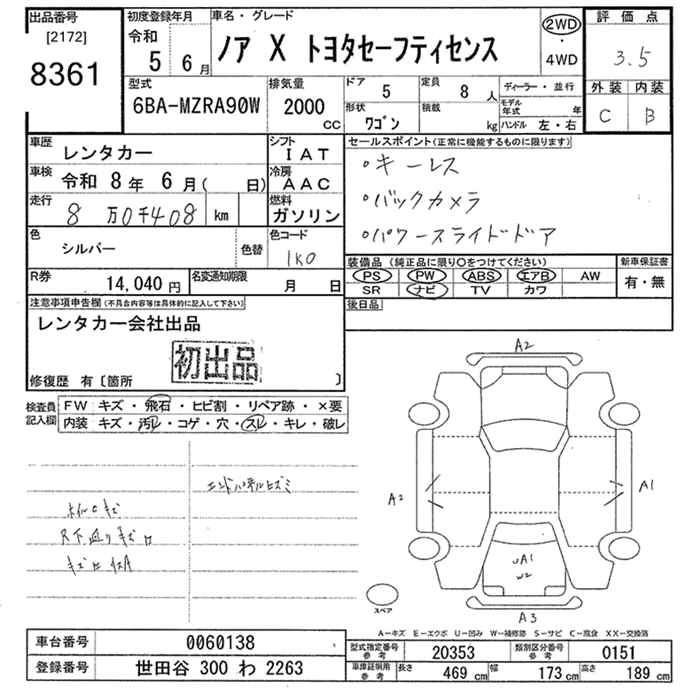 出品番号
[2172]
8361
初度登録年月
令和
5 6月
車名・グレード
ノア X トヨタセーフティセンス
2WD
・
4WD
評価点
3.5
外装 内装
C B
型式
6BA-MZRA90W
排気量
2000
cc
ドア
5
定員
8 人
形状
ワゴン
積載
kg
ディーラー・並行
モデル年式 年
ハンドル 左・右
車歴
レンタカー
シフト
IAT
車検
令和 8年 6月( 日)
冷房
AAC
走行
8万0千408 km
燃料
ガソリン
色
シルバー
色替
色コード
1K0
R券
14,040 円
名変通知期限
月 日
セールスポイント(正常に機能するものに限ります)
・キーレス
・バックカメラ
・パワースライドドア
装備品 (純正品に限り○をつけてください)
PS PW ABS エアB AW
SR ナビ TV カワ
新車保証書
有・無
後日品
注意事項申告欄(不具合内容等は具体的に記入して下さい)
レンタカー会社出品
初出品
修復歴 有〔箇所 〕
検査員記入欄
FW キズ・飛石・ヒビ割・リペア跡・×要
内装 キズ・汚レ・コゲ・穴・スレ・キレ・破レ
A2
A2
A1
UA1
W2
A3
スペア
A-キズ E-エクボ U-凹み W-補修跡 S-サビ C-腐食 XX-交換済
車台番号
0060138
登録番号
世田谷 300 わ 2263
型式指定番号
参考
20353
類別区分番号
参考
0151
車庫証明用
参考
長さ
469 cm
幅
173 cm
高さ
189 cm